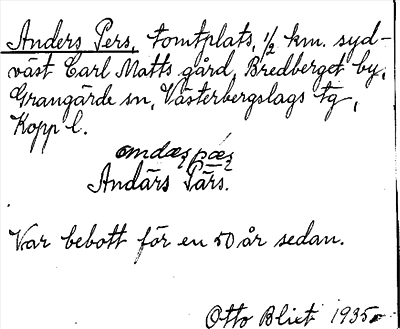 Anders Pers, tomtplats, 1/2 km. syd-
väst Carl Matts gård, Bredberget by,
Grangärde sn, Västerbergslags tg,
Kopp l.
Andärs Pärs.
Var bebott för en 50 år sedan.
Otto Blixt 1935